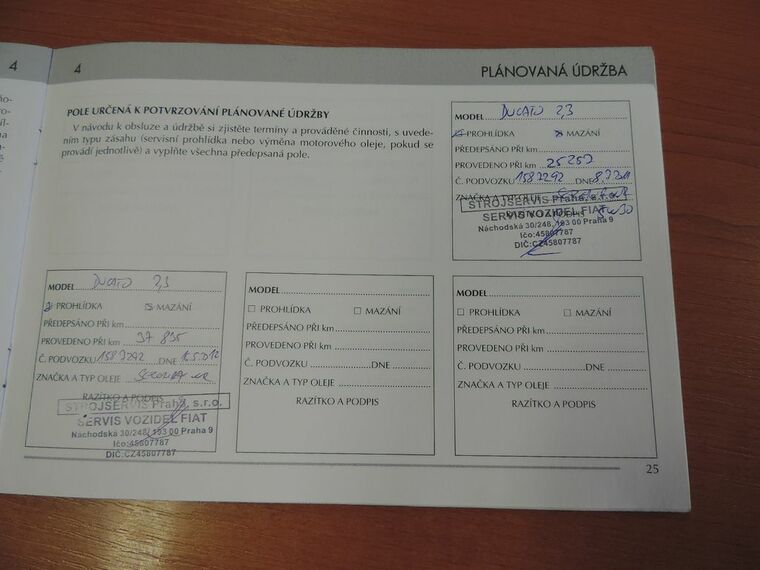 4
4
PLÁNOVANÁ ÚDRŽBA
POLE URČENÁ K POTVRZOVÁNÍ PLÁNOVANÉ ÚDRŽBY
V návodu k obsluze a údržbě si zjistěte termíny a prováděné činnosti, s uvede-
ním typu zásahu (servisní prohlídka nebo výměna motorového oleje, pokud se
provádí jednotlivě) a vyplňte všechna předepsaná pole.
MODEL DUCATO 2,3
PROHLÍDKA MAZÁNÍ
PŘEDEPSÁNO PŘI km
PROVEDENO PŘI km 25 257
Č. PODVOZKU 1587292 DNE
ZNAČKA A TYP OLEJE
STROJSERVIS Praha, s.r.o.
SERVIS VOZIDEL FIAT
Náchodská 30/248, 193 00 Praha 9
Ičo:45807787
DIČ:CZ45807787
MODEL DUCATO 2,3
PROHLÍDKA MAZÁNÍ
PŘEDEPSÁNO PŘI km
PROVEDENO PŘI km 37 835
Č. PODVOZKU 1587292 DNE
ZNAČKA A TYP OLEJE
RAZÍTKO A PODPIS
STROJSERVIS Praha, s.r.o.
SERVIS VOZIDEL FIAT
Náchodská 30/248, 193 00 Praha 9
Ičo:45807787
DIČ:CZ45807787
MODEL
PROHLÍDKA MAZÁNÍ
PŘEDEPSÁNO PŘI km
PROVEDENO PŘI km
Č. PODVOZKU DNE
ZNAČKA A TYP OLEJE
RAZÍTKO A PODPIS
MODEL
PROHLÍDKA MAZÁNÍ
PŘEDEPSÁNO PŘI km
PROVEDENO PŘI km
Č. PODVOZKU DNE
ZNAČKA A TYP OLEJE
RAZÍTKO A PODPIS
25